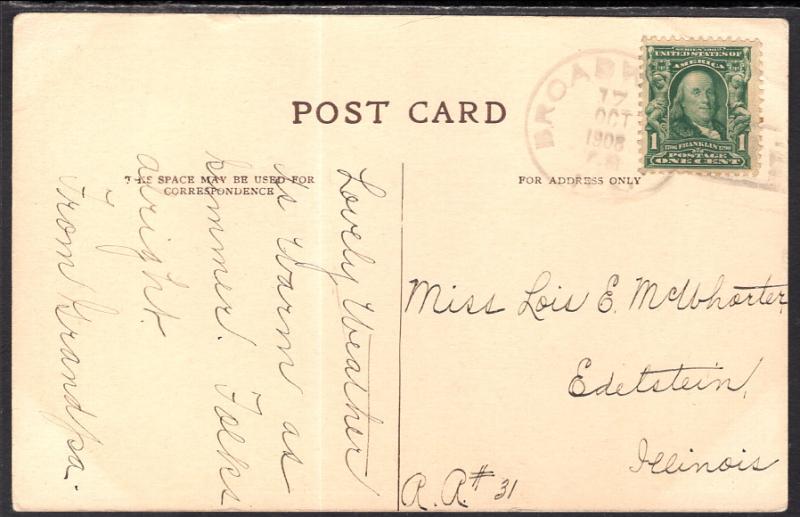 POST CARD
SPACE MAY BE USED FOR
CORRESPONDENCE
FOR ADDRESS ONLY
17
OCT
1908
SERIES 1902
UNITED STATES OF
AMERICA
1 FRANKLIN 1
POSTAGE
ONE CENT
Lovely Weather
As Warm as
Summer. Folks
alright.
From Grandpa.
Miss Lois E. McWhorter
Edelstein,
Illinois
R. R. # 31